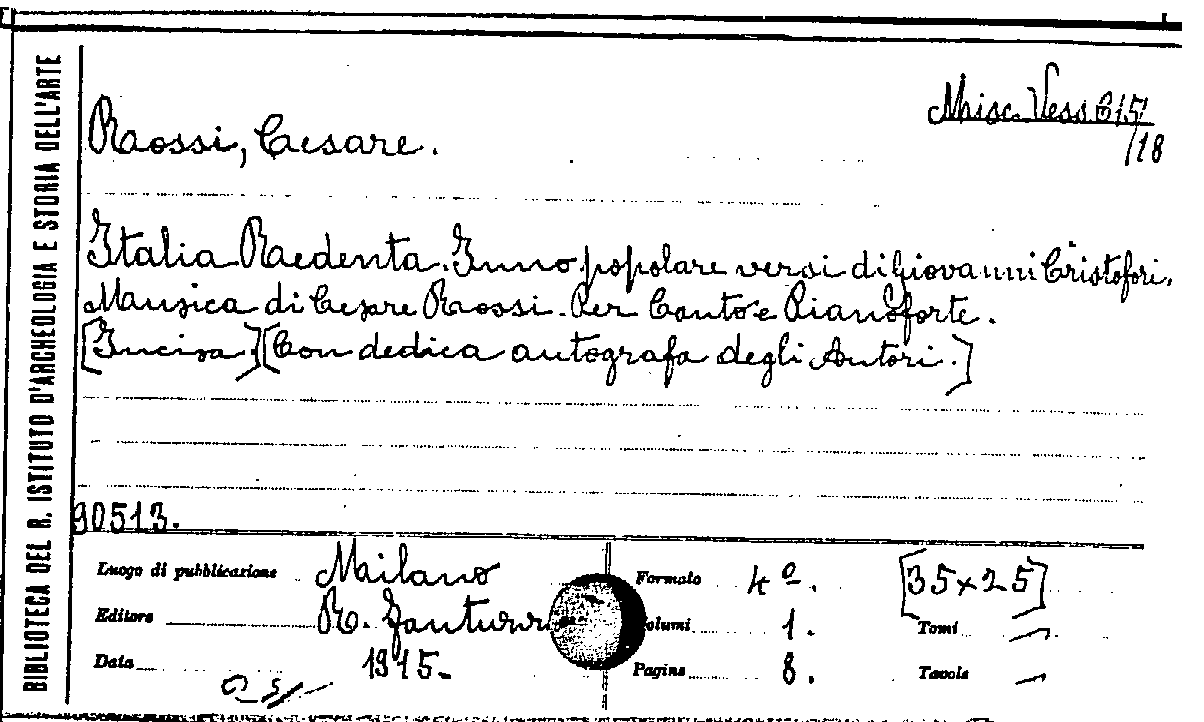 BIBLIOTECA DEL R. ISTITUTO D'ARCHEOLOGIA E STORIA DELL'ARTE
Misc. Vess 615/18
Rossi, Cesare.
Italia Redenta. Inno popolare versi di Giovanni Cristofori.
Musica di Cesare Rossi. Per Canto e Pianoforte.
[Incisa.] [Con dedica autografa degli Autori.]
90513.
Luogo di pubblicazione Milano
Editore R.
Data 1915.
Formato 4º. [35x25]
Volumi 1. Tomi —
Pagine 8. Tavole —